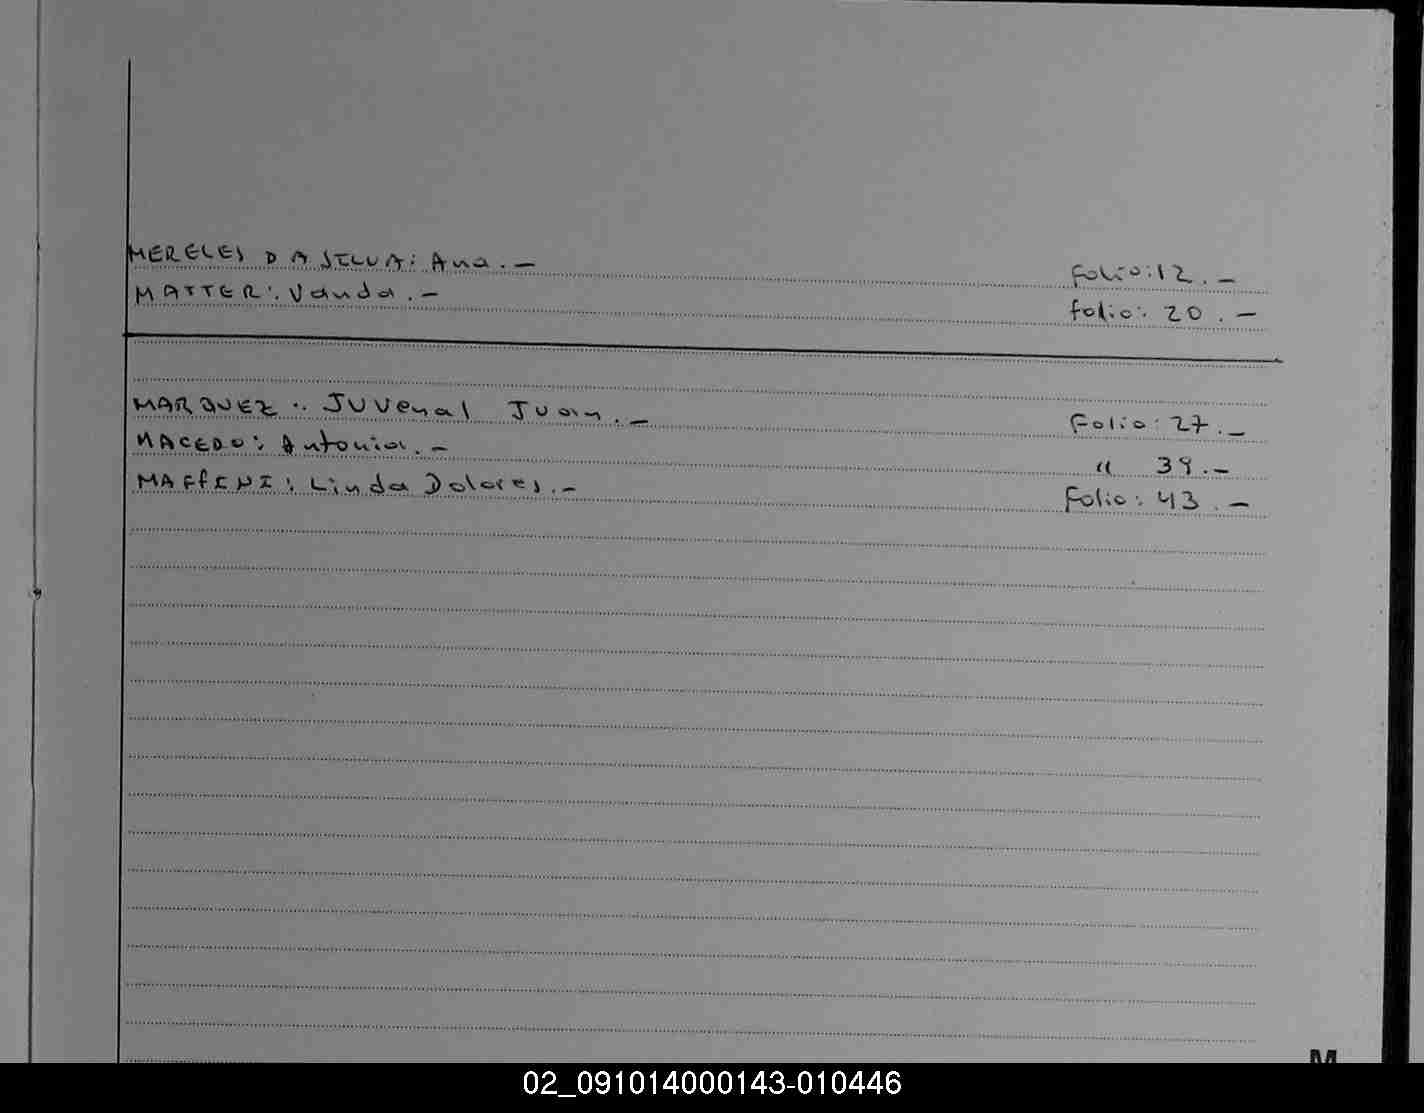 MERELES DA SILVA: Ana.- Folio: 12.-
MATTER: Vanda.- folio: 20.-
MARQUEZ: Juvenal Juan.- Folio: 27.-
MACEDO: Antonia.- " 39.-
MAFFINI: Linda Dolores.- Folio: 43.-
M
02_091014000143-010446